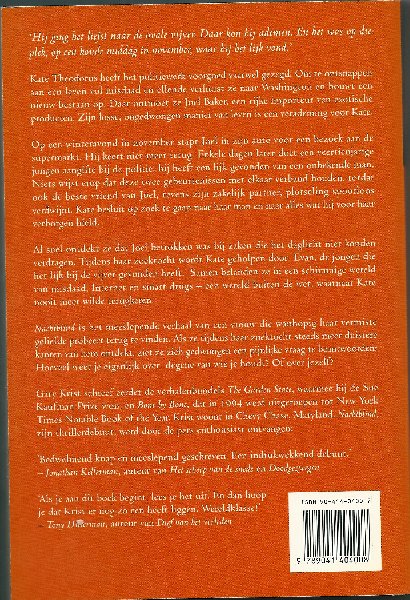 'Hij ging het liefst naar de ovale vijver. Daar kon hij ademen. En het was op die
plek, op een koude middag in november, waar hij het lijk vond.'
Kate Theodorus heeft het politiewerk voorgoed vaarwel gezegd. Om te ontsnappen
aan een leven vol misdaad en ellende verhuist ze naar Washington en bouwt een
nieuw bestaan op. Daar ontmoet ze Joel Baker, een rijke importeur van exotische
producten. Zijn losse, ongedwongen manier van leven is een verademing voor Kate.
Op een winteravond in november stapt Joel in zijn auto voor een bezoek aan de
supermarkt. Hij keert niet meer terug. Enkele dagen later doet een veertienjarige
jongen aangifte bij de politie: hij heeft een lijk gevonden van een onbekende man.
Niets wijst erop dat deze twee gebeurtenissen met elkaar verband houden, totdat
ook de beste vriend van Joel, tevens zijn zakelijk partner, plotseling spoorloos
verdwijnt. Kate besluit op zoek te gaan naar haar man en naar alles wat hij voor haar
verborgen hield.
Al snel ontdekt ze dat Joel betrokken was bij zaken die het daglicht niet konden
verdragen. Tijdens haar zoektocht wordt Kate geholpen door Evan, de jongen die
het lijk bij de vijver gevonden heeft. Samen belanden ze in een schimmige wereld
van misdaad, Internet en smart drugs – een wereld buiten de wet, waarnaar Kate
nooit meer wilde terugkeren.
Nachtblind is het meeslepende verhaal van een vrouw die wanhopig haar vermiste
geliefde probeert terug te vinden. Als ze tijdens haar zoektocht steeds meer duistere
kanten van hem ontdekt, ziet ze zich gedwongen een pijnlijke vraag te beantwoorden:
Hoeveel weet je eigenlijk over degene van wie je houdt? Of over jezelf?
Gary Krist schreef eerder de verhalenbundels The Garden State, waarmee hij de Sue
Kaufman Prize won, en Bone by Bone, dat in 1994 werd uitgeroepen tot New York
Times Notable Book of the Year. Krist woont in Chevy Chase, Maryland. Nachtblind,
zijn thrillerdebuut, werd door de pers enthousiast ontvangen:
'Bedwelmend knap en meeslepend geschreven. Een indrukwekkend debuut.'
– Jonathan Kellerman, auteur van Het scherp van de snede en Doodgezwegen
'Als je aan dit boek begint, lees je het uit. En dan hoop
je dat Krist er nog zo een heeft liggen. Wereldklasse!'
– Tony Hillerman, auteur van Dief van het verleden
ISBN 90-414-0400-7
9 789041 404008